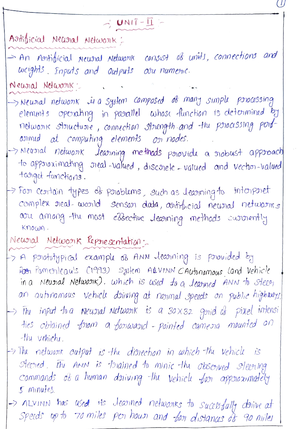 UNIT-II
Artificial Neural Network:
→ An Artificial Neural Network consist of units, connections and
weights. Inputs and outputs are numeric.
Neural Network:
→ Neural network is a system composed of many simple processing
elements operating in parallel whose function is determined by
network structure, connection strength and the processing perf-
ormed at computing elements or nodes.
→ Neural network learning methods provide a robust approach
to approximating real-valued, discrete-valued and vector-valued
target functions.
→ For certain types of problems, such as learning to interpret
complex real-world sensor data, artificial neural networks
are among the most effective learning methods currently
known.
Neural Network Representation:
→ A prototypical example of ANN learning is provided by
Pomerleau's (1993) system ALVINN (Autonomous Land Vehicle
in a Neural Network). which is used to a learned ANN to steer
an autonomous vehicle driving at normal speeds on public highways
→ The input to a Neural Network is a 30x32 grid of pixel intensi
ties obtained from a forward-pointed camera mounted on
the vehicle.
→ The network output is the direction in which the vehicle is
steered. The ANN is trained to mimic the observed steering
commands of a human driving the vehicle for approximately
5 minutes.
→ ALVINN has used its learned networks to sucessfully drive at
speeds up to 70 miles per hour and for distances of 90 miles